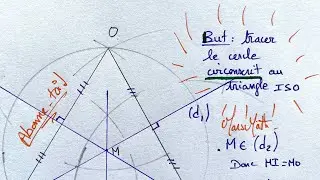 But : tracer
le cercle
circonscrit au
triangle ISO
O
Abonne-toi
(d₁)
. M ∈ (d₂)
M
Donc MI=MO